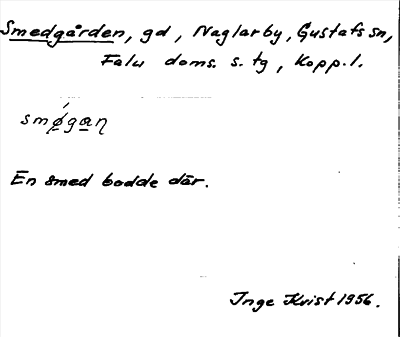 Smedgården, gd, Naglarby, Gustafs sn,
Falu doms. s. tg, Kopp. l.
smǿgaɳ
En smed bodde där.
Inge Kvist 1956.